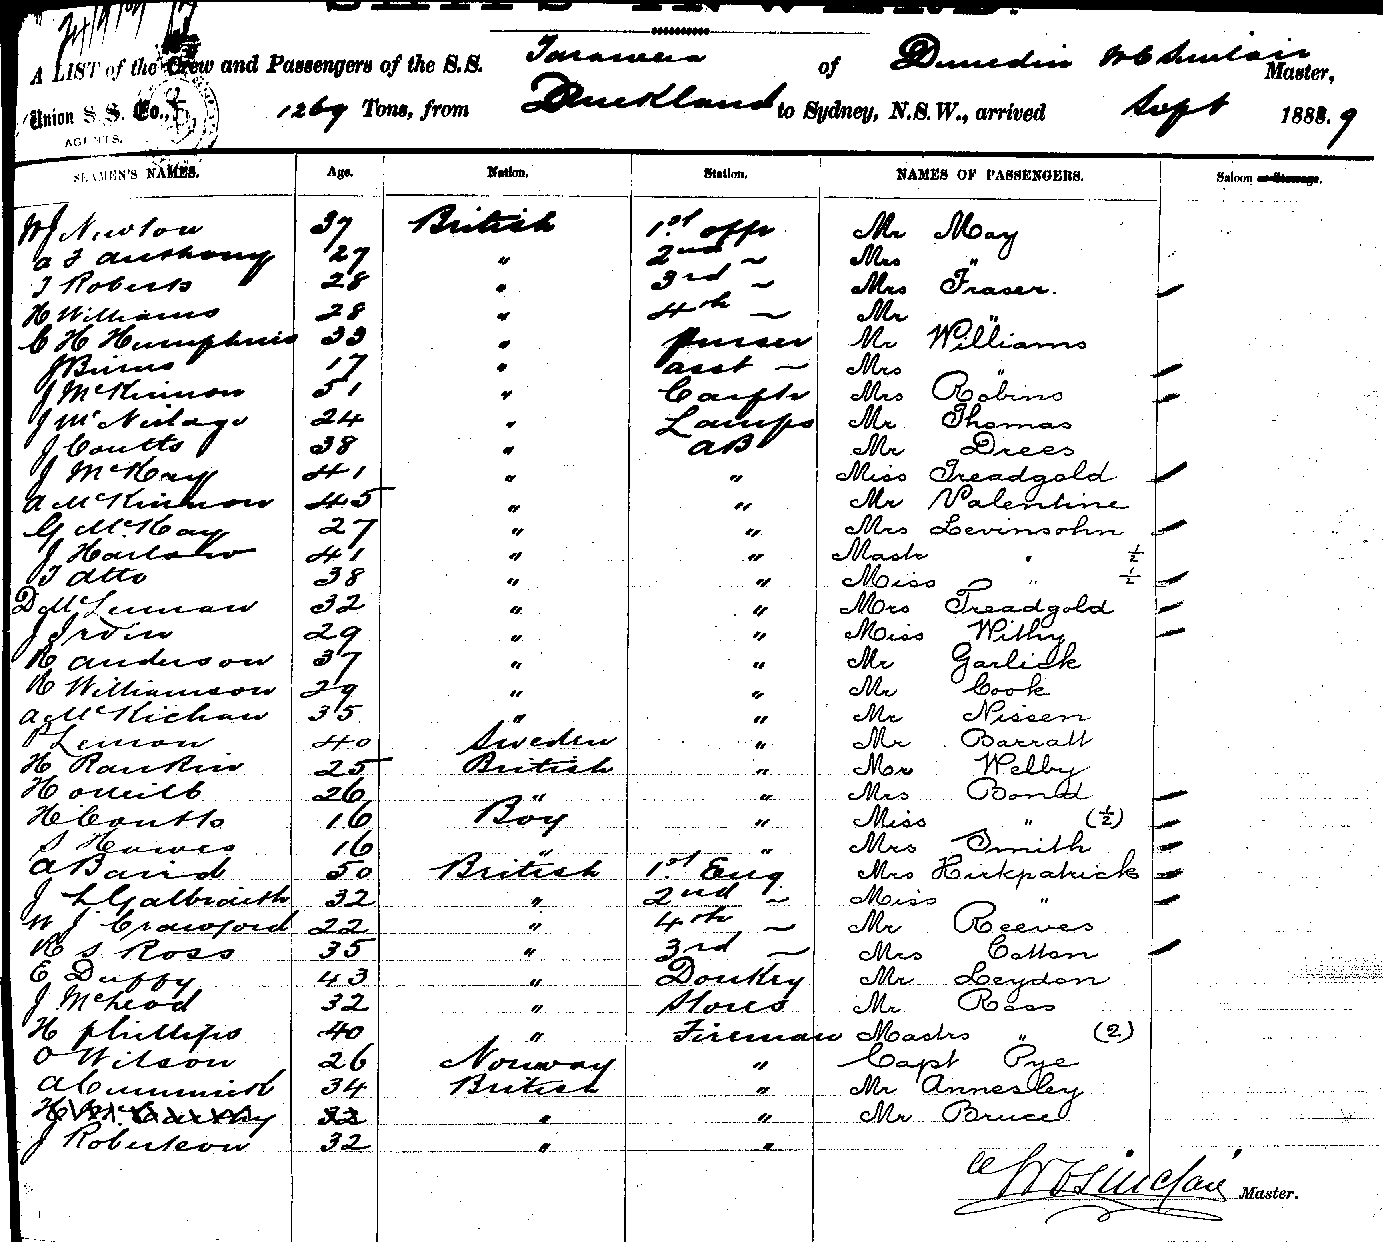 SHIPS INWARD.
A LIST of the Crew and Passengers of the S.S. Tarawera of Dunedin W C Sinclair Master,
Union S. S. Co., 1269 Tons, from Auckland to Sydney, N.S.W., arrived Sept 1889
AGENTS.
SEAMEN'S NAMES. Age. Nation. Station. NAMES OF PASSENGERS. Saloon or Steerage.
W J Newton 37 British 1st offr Mr May
A F Anthony 27 " 2nd ~ Mrs "
T Roberts 28 " 3rd ~ Mrs Fraser.
H Williams 28 " 4th ~ Mr "
C H Humphries 33 " purser Mr Williams
J Binns 17 " asst ~ Mrs "
J McKinnon 51 " Carptr Mrs Robins
J McNeilage 24 " Lamps Mr Thomas
J Coutts 38 " AB Mr Drees
J McKay 41 " " Miss Treadgold
A McKinnon 45 " " Mr Valentine
G McKay 27 " " Mrs Levinsohn
J Harlow 41 " " Mastr " ½
T Atto 38 " " Miss " ½
D McLennan 32 " " Mrs Treadgold
J Irvin 29 " " Miss Withy
R Anderson 37 " " Mr Garlick
R Williamson 29 " " Mr Cook
A McKichan 35 " " Mr Nissen
P Lemon 40 Sweden " Mr Barratt
H Rankin 25 British " Mr Welby
H Oneill 26 " " Mrs Bond
H Coutts 16 Boy " Miss " (½)
S Hawes 16 " " Mrs Smith
A Baird 50 British 1st Eng Mrs Kirkpatrick
J L Galbraith 32 " 2nd ~ Miss "
W J Crawford 22 " 4th ~ Mr Reeves
R S Ross 35 " 3rd ~ Mrs Cotton
E Duffy 43 " Donkey Mr Leydon
J McLeod 32 " Stores Mr Ross
H Phillips 40 " Fireman Mastrs " (2)
O Wilson 26 Norway " Capt Pye
A Cummick 34 British " Mr Annesley
H McCarthy 32 " " Mr Bruce
J Robertson 32 " "
W C Sinclair Master.